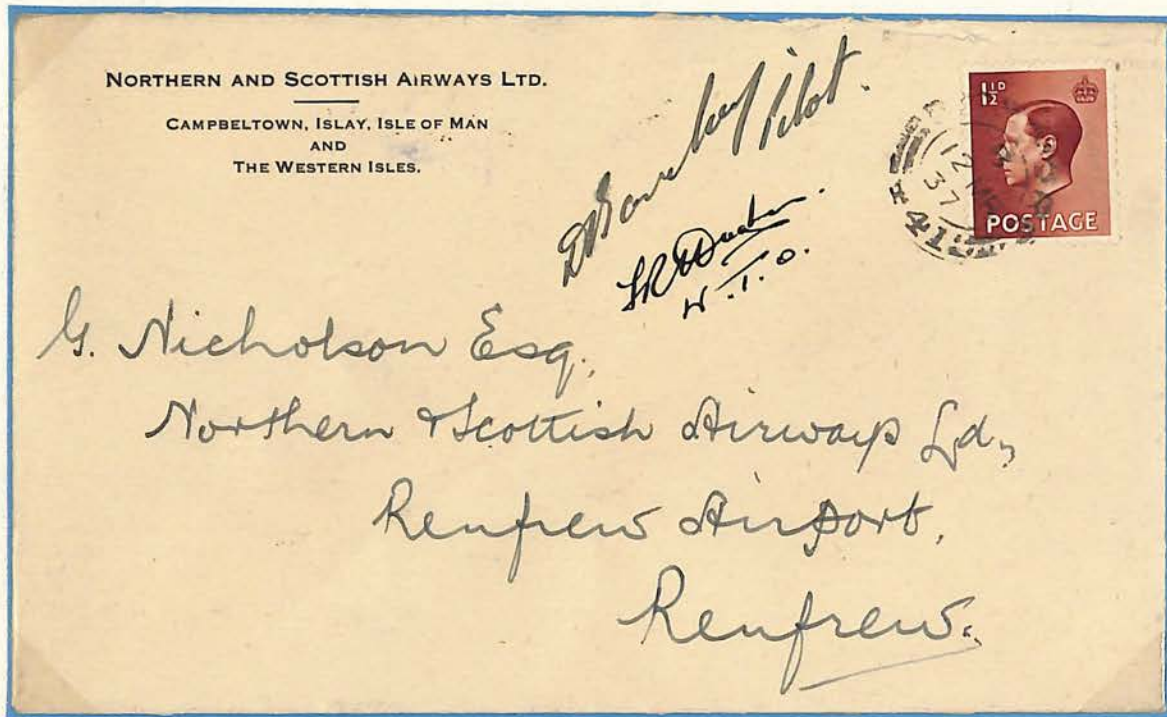 NORTHERN AND SCOTTISH AIRWAYS LTD.
CAMPBELTOWN, ISLAY, ISLE OF MAN
AND
THE WESTERN ISLES.
Pilot.
W.T.O.
1½D
POSTAGE
12
37
41
G. Nicholson Esq.,
Northern & Scottish Airways Ld.,
Renfrew Airport,
Renfrew.